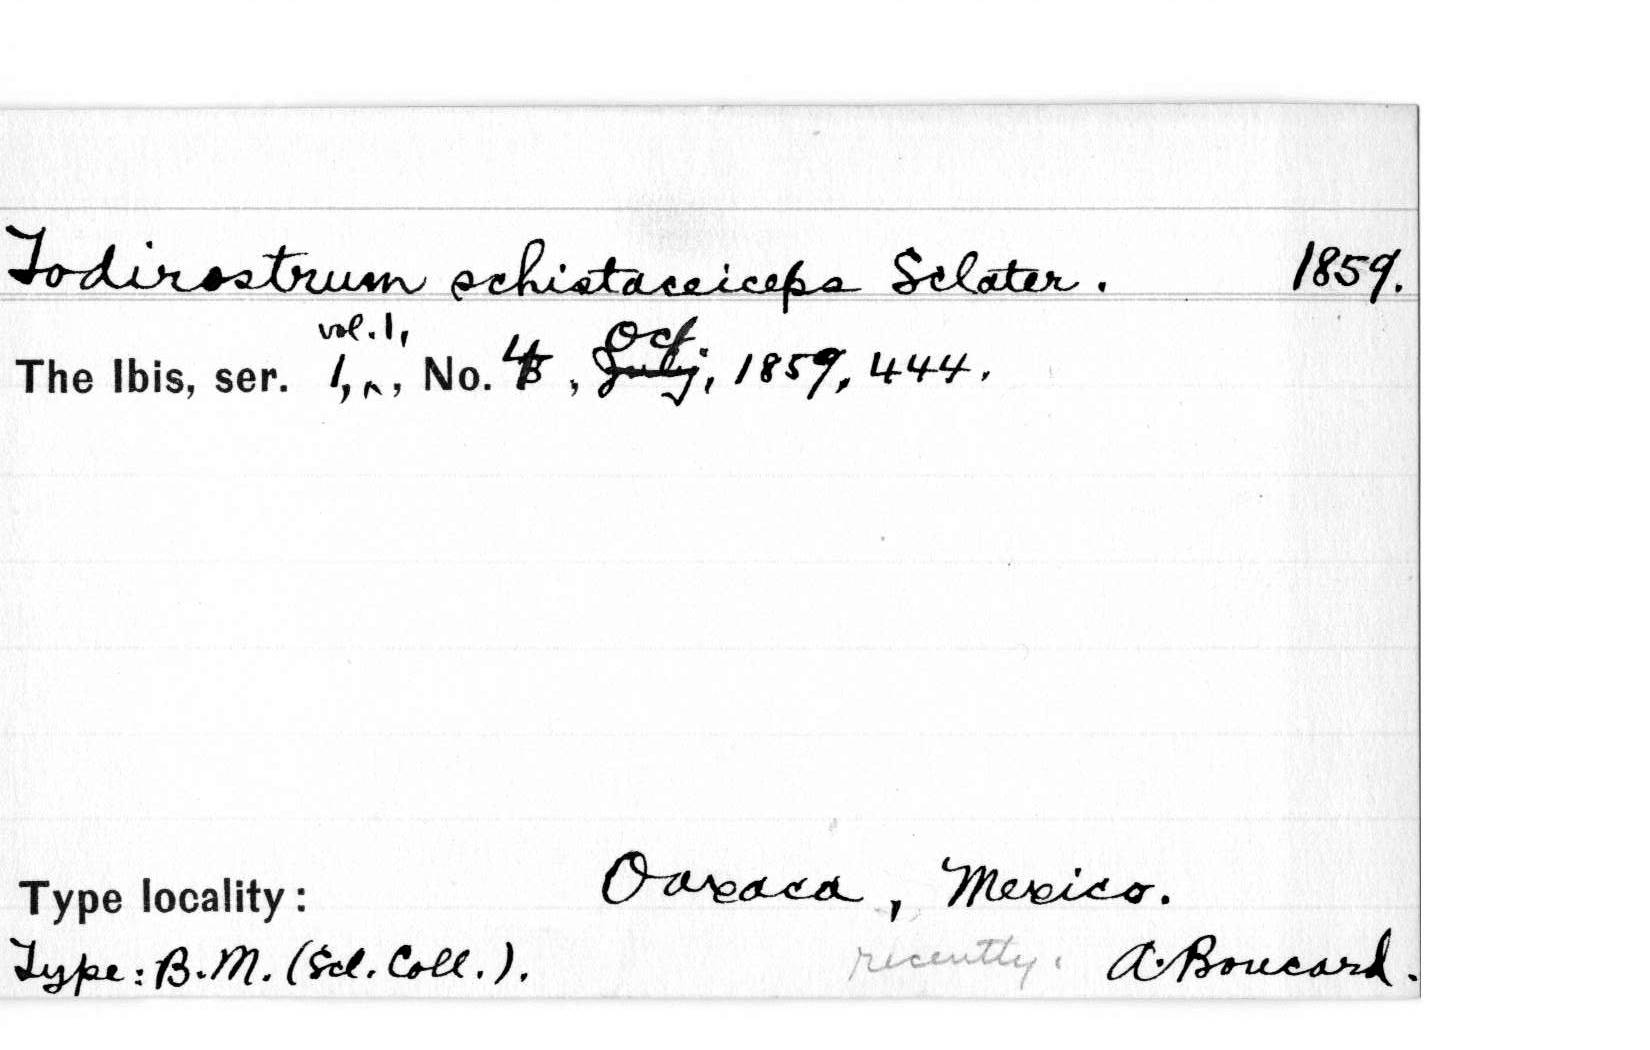 Todirostrum schistaceiceps Sclater. 1859.
vol. 1, Oct
The Ibis, ser. 1, ^, No. 4, July, 1859, 444.
Type locality: Oaxaca, Mexico.
Type: B.M. (Scl. Coll.). recently. A. Boucard.